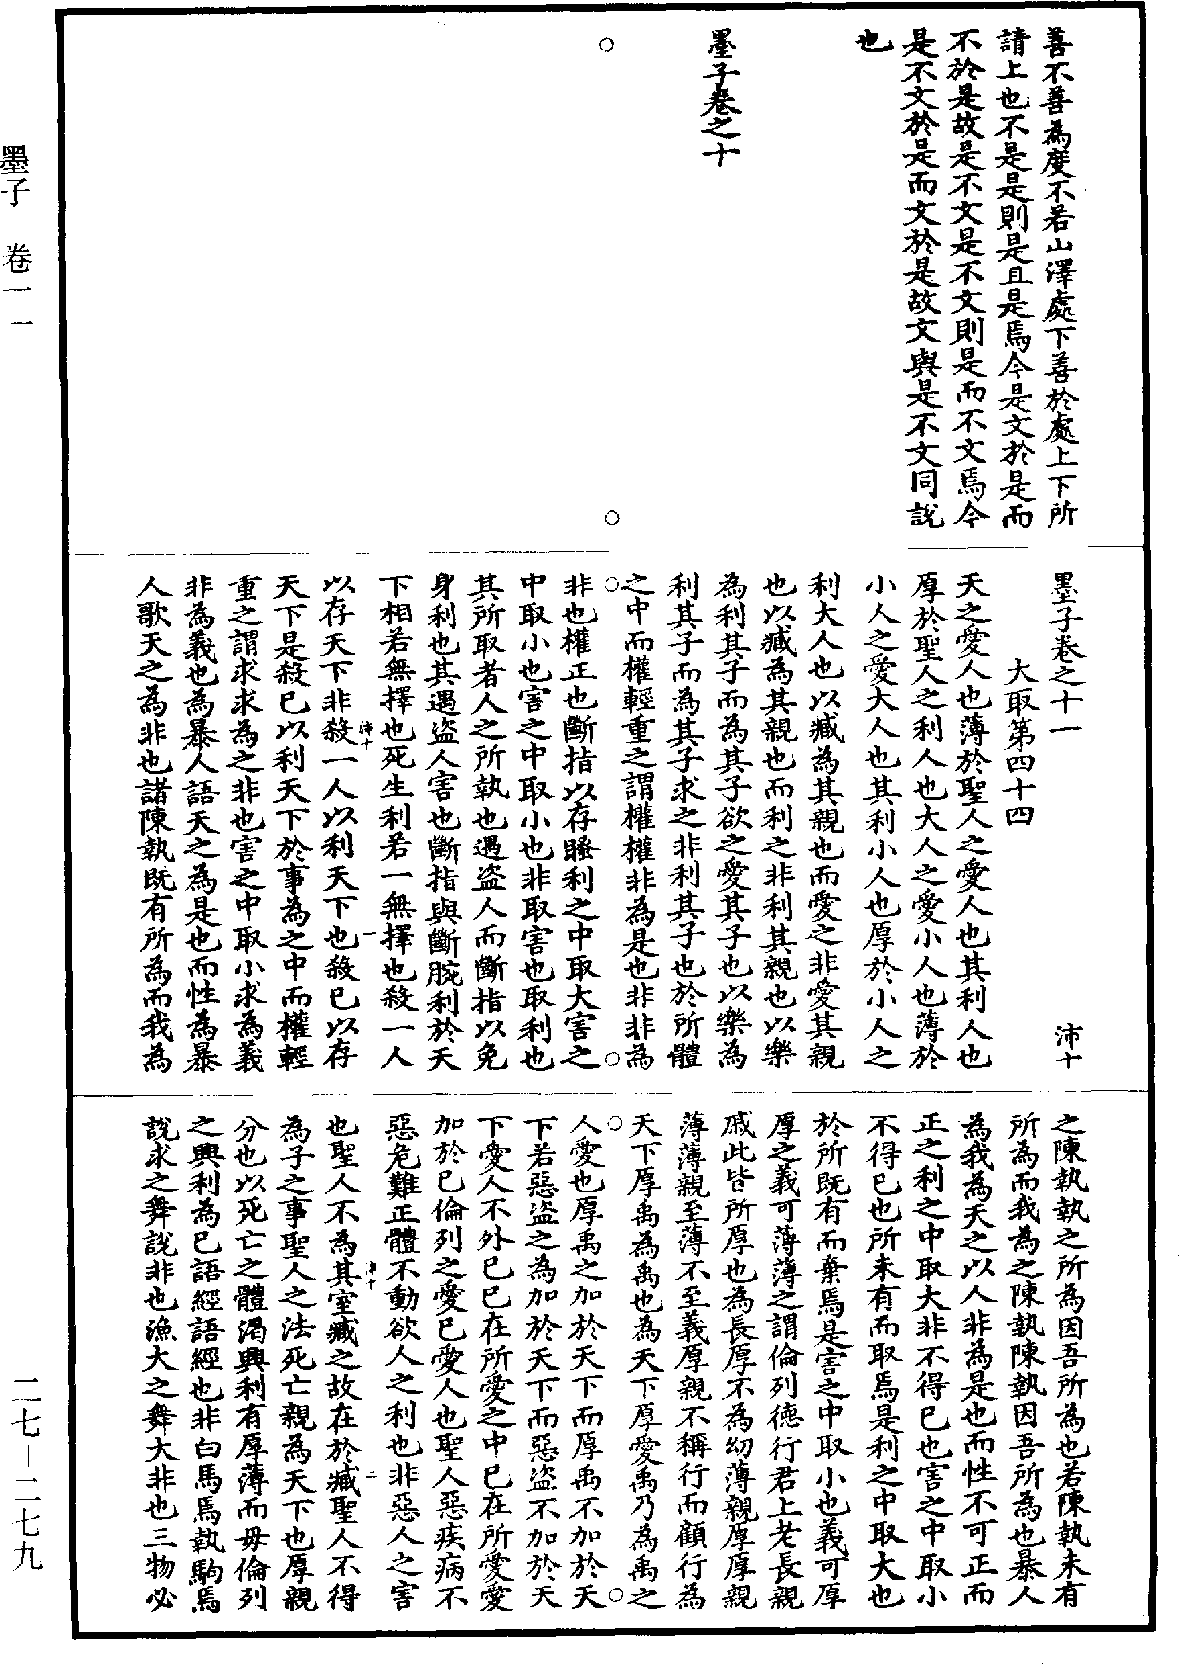 善不善為度不若山澤處下善於處上下所
請上也不是是則是且是焉今是文於是而
不於是故是不文是不文則是而不文焉今
是不文於是而文於是故文與是不文同說
也
墨子卷之十
墨子卷之十一
沛十
大取第四十四
天之愛人也薄於聖人之愛人也其利人也
厚於聖人之利人也大人之愛小人也薄於
小人之愛大人也其利小人也厚於小人之
利大人也以臧為其親也而愛之非愛其親
也以臧為其親也而利之非利其親也以樂
為利其子而為其子欲之愛其子也以樂為
利其子而為其子求之非利其子也於所體
之中而權輕重之謂權權非為是也非非為
非也權正也斷指以存䁋利之中取大害之
中取小也害之中取小也非取害也取利也
其所取者人之所執也遇盜人而斷指以免
身利也其遇盜人害也斷指與斷腕利於天
下相若無擇也死生利若一無擇也殺一人
沛十
一
以存天下非殺一人以利天下也殺已以存
天下是殺已以利天下於事為之中而權輕
重之謂求求為之非也害之中取小求為義
非為義也為暴人語天之為是也而性為暴
人歌天之為非也諸陳執既有所為而我為
之陳執執之所為因吾所為也若陳執未有
所為而我為之陳執陳執因吾所為也暴人
為我為天之以人非為是也而性不可正而
正之利之中取大非不得已也害之中取小
不得已也所未有而取焉是利之中取大也
於所既有而棄焉是害之中取小也義可厚
厚之義可薄薄之謂倫列德行君上老長親
戚此皆所厚也為長厚不為幼薄親厚厚親
薄薄親至薄不至義厚親不稱行而顧行為
天下厚禹為禹也為天下厚愛禹乃為禹之
人愛也厚禹之加於天下而厚禹不加於天
下若惡盜之為加於天下而惡盜不加於天
下愛人不外已已在所愛之中已在所愛愛
加於已倫列之愛已愛人也聖人惡疾病不
惡危難正體不動欲人之利也非惡人之害
沛十
二
也聖人不為其室臧之故在於臧聖人不得
為子之事聖人之法死亡親為天下也厚親
分也以死亡之體渴興利有厚薄而毋倫列
之興利為已語經語經也非白馬焉執駒焉
說求之舞說非也漁大之舞大非也三物必
墨子　卷一一
二七—二七九